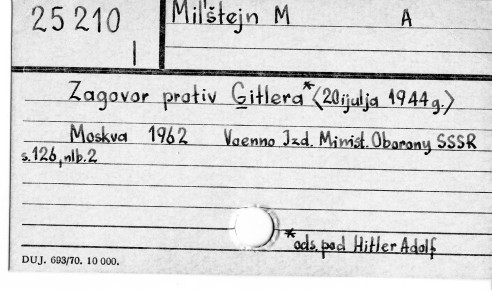 25 210 Mil'štejn M A
I
Zagovor protiv Gitlera* (20 ijulja 1944 g.)
Moskva 1962 Voenno Izd. Minist. Oborony SSSR
s.126, nlb.2
*ods. pod Hitler Adolf
DUJ. 693/70. 10 000.